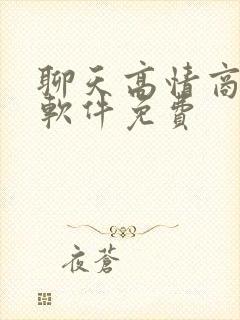 聊天高情商
軟件免費
夜蒼